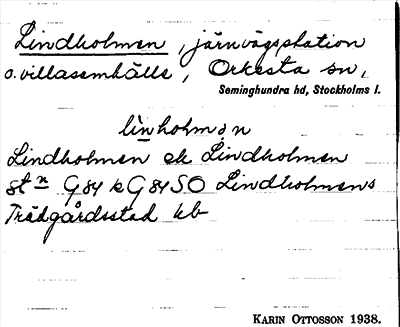 Lindholmen, järnvägsstation
o. villasamhälle, Orkesta sn,
Seminghundra hd, Stockholms l.
linholmən
Lindholmen ek Lindholmen
stn G 84 k G 84 SO Lindholmens
Trädgårdsstad kb
KARIN OTTOSSON 1938.